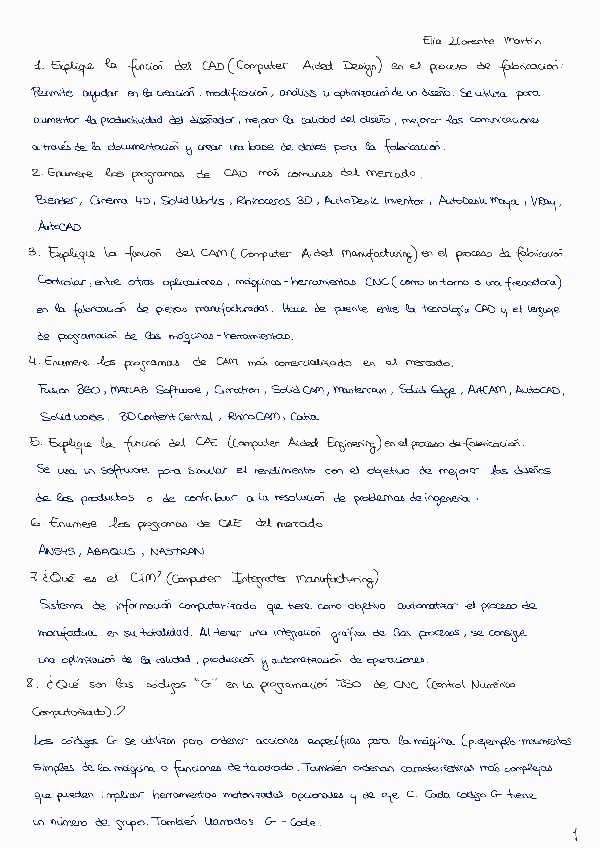 Elia Llorente Martín
1. Explique la función del CAD (Computer Aided Design) en el proceso de fabricación:
Permite ayudar en la creación, modificación, análisis u optimización de un diseño. Se utiliza para
aumentar la productividad del diseñador, mejorar la calidad del diseño, mejorar las comunicaciones
a través de la documentación y crear una base de datos para la fabricación.
2. Enumere los programas de CAD más comunes del mercado.
Blender, Cinema 4D, SolidWorks, Rhinoceros 3D, AutoDesk Inventor, AutoDesk Maya, VRay,
AutoCAD
3. Explique la función del CAM (Computer Aided Manufacturing) en el proceso de fabricación.
Controlar, entre otras aplicaciones, máquinas-herramientas CNC (como un torno o una fresadora)
en la fabricación de piezas manufacturadas. Hace de puente entre la tecnología CAD y el lenguaje
de programación de las máquinas-herramientas.
4. Enumere los programas de CAM más comercializado en el mercado.
Fusion 360, MATLAB Software, Cimatron, Solid CAM, Mastercam, Solid Edge, ArtCAM, AutoCAD,
Solid works, 3D Content Central, RhinoCAM, Catia
5. Explique la función del CAE (Computer Aided Enginering) en el proceso de fabricación.
Se usa un software para simular el rendimiento con el objetivo de mejorar los diseños
de los productos o de contribuir a la resolución de problemas de ingeneria.
6. Enumere los programas de CAE del mercado
ANSYS, ABAQUS, NASTRAN
7. ¿Qué es el CIM? (Computer Integrater Manufacturing)
Sistema de información computarizado que tiene como objetivo automatizar el proceso de
manufactura en su totalidad. Al tener una integración gráfica de los procesos, se consigue
una optimización de la calidad, producción y automatización de operaciones.
8. ¿Qué son los códigos "G" en la programación ISO de CNC (Control Numérico
Computorizado).?
Los códigos G se utilizan para ordenar acciones específicas para la máquina (p.ejemplo: movimientos
simples de la máquina o funciones de taladrado. También ordenan características más complejas
que pueden implicar herramientas motorizadas opcionales y de eje C. Cada codigo G tiene
un número de grupo. También llamados G-Code.
1